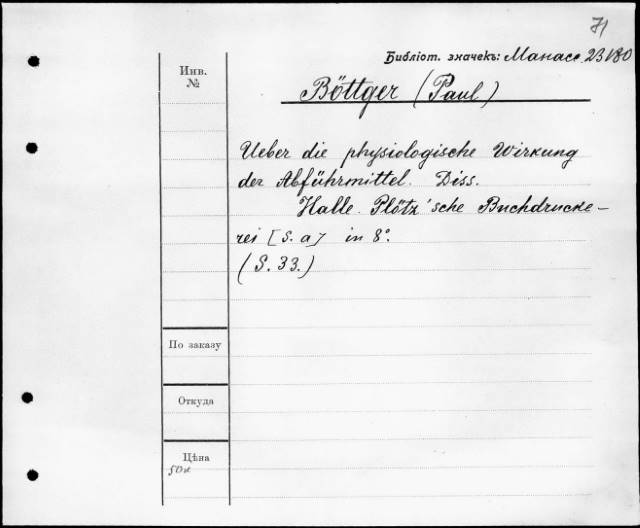 71
Библіот. значекъ: Манасс 23180
Инв.
№
Böttger (Paul)
Ueber die physiologische Wirkung
der Abführmittel. Diss.
Halle. Plötz'sche Buchdrucke-
rei [s. a] in 8°.
(S. 33.)
По заказу
Откуда
Цѣна
50к